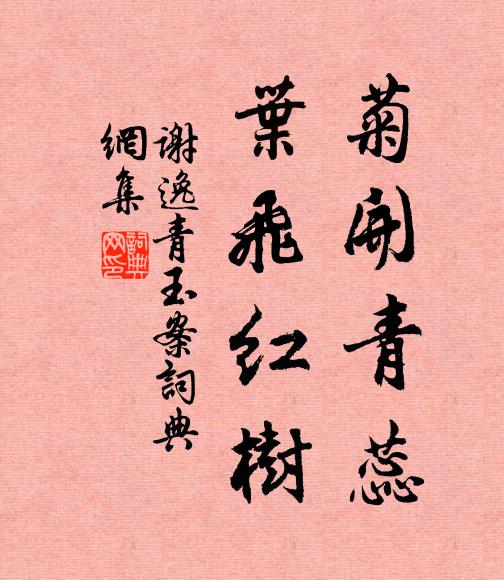 菊開青蕊
葉飛紅樹
謝逸青玉案詞典
網集
詞典
网印